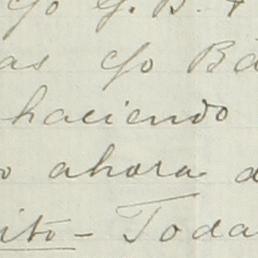 c/o G. B. &
as c/o Bá
haciendo
o ahora a
ito - Toda